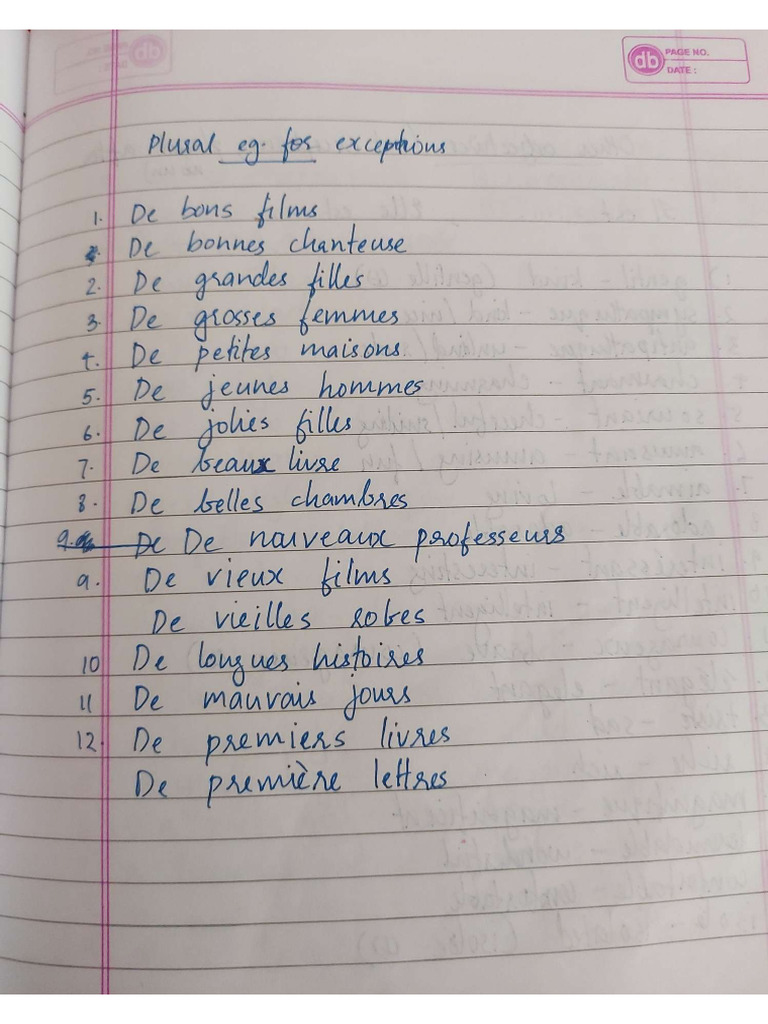 db PAGE NO.
DATE :
Plural eg. for exceptions
1. De bons films
De bonnes chanteuse
2. De grandes filles
3. De grosses femmes
4. De petites maisons.
5. De jeunes hommes
6. De jolies filles
7. De beaux livre
8. De belles chambres
9. De De nouveaux professeurs
9. De vieux films
De vieilles robes
10 De longues histoires
11 De mauvais jours
12. De premiers livres
De première lettres